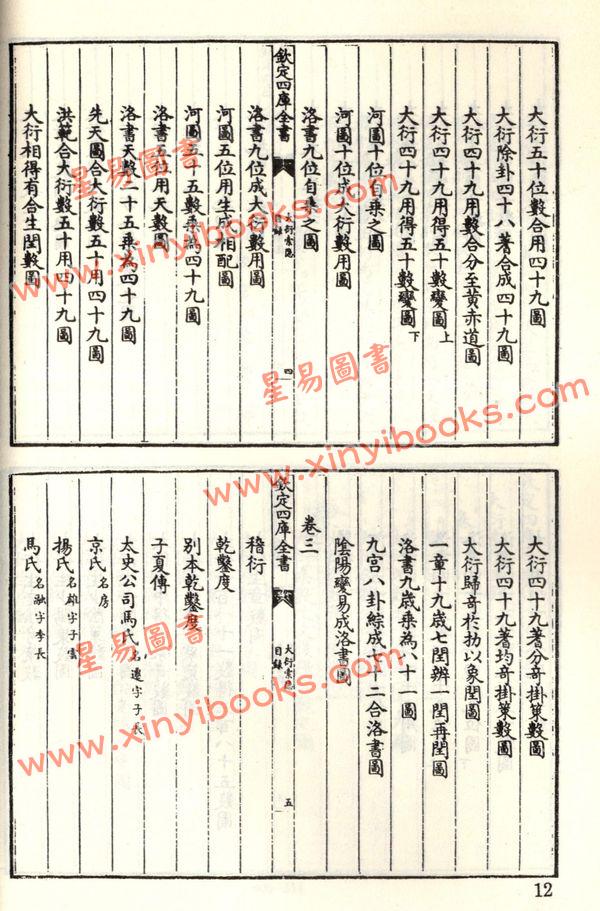 大衍五十位數合用四十九圖
大衍除卦四十八蓍合成四十九圖
大衍四十九用數合分至黃赤道圖
大衍四十九用得五十數變圖上
大衍四十九用得五十數變圖下
河圖十位自乘之圖
河圖十位成大衍數用圖
洛書九位自乘之圖
欽定四庫全書
大衍索隱
目錄
四
洛書九位成大衍數用圖
河圖五位用生成相配圖
河圖五十五數乘為四十九圖
洛書五位用天數圖
洛書天數二十五乘為四十九圖
先天圖合大衍數五十用四十九圖
洪範合大衍數五十用四十九圖
大衍相得有合生閏數圖
大衍四十九蓍分奇掛策數圖
大衍四十九蓍均奇掛策數圖
大衍歸奇於扐以象閏圖
一章十九歲七閏辨一閏再閏圖
洛書九歲乘為八十一圖
九宮八卦綜成七十二合洛書圖
陰陽變易成洛書圖
卷三
欽定四庫全書
大衍索隱
目錄
五
稽衍
乾鑿度
別本乾鑿度
子夏傳
太史公司馬氏名遷字子長
京氏名房
揚氏名雄字子雲
馬氏名融字季長
12
星易圖書
www.xinyibooks.com
星易圖書
www.xinyibooks.com
星易圖書
www.xinyibooks.com